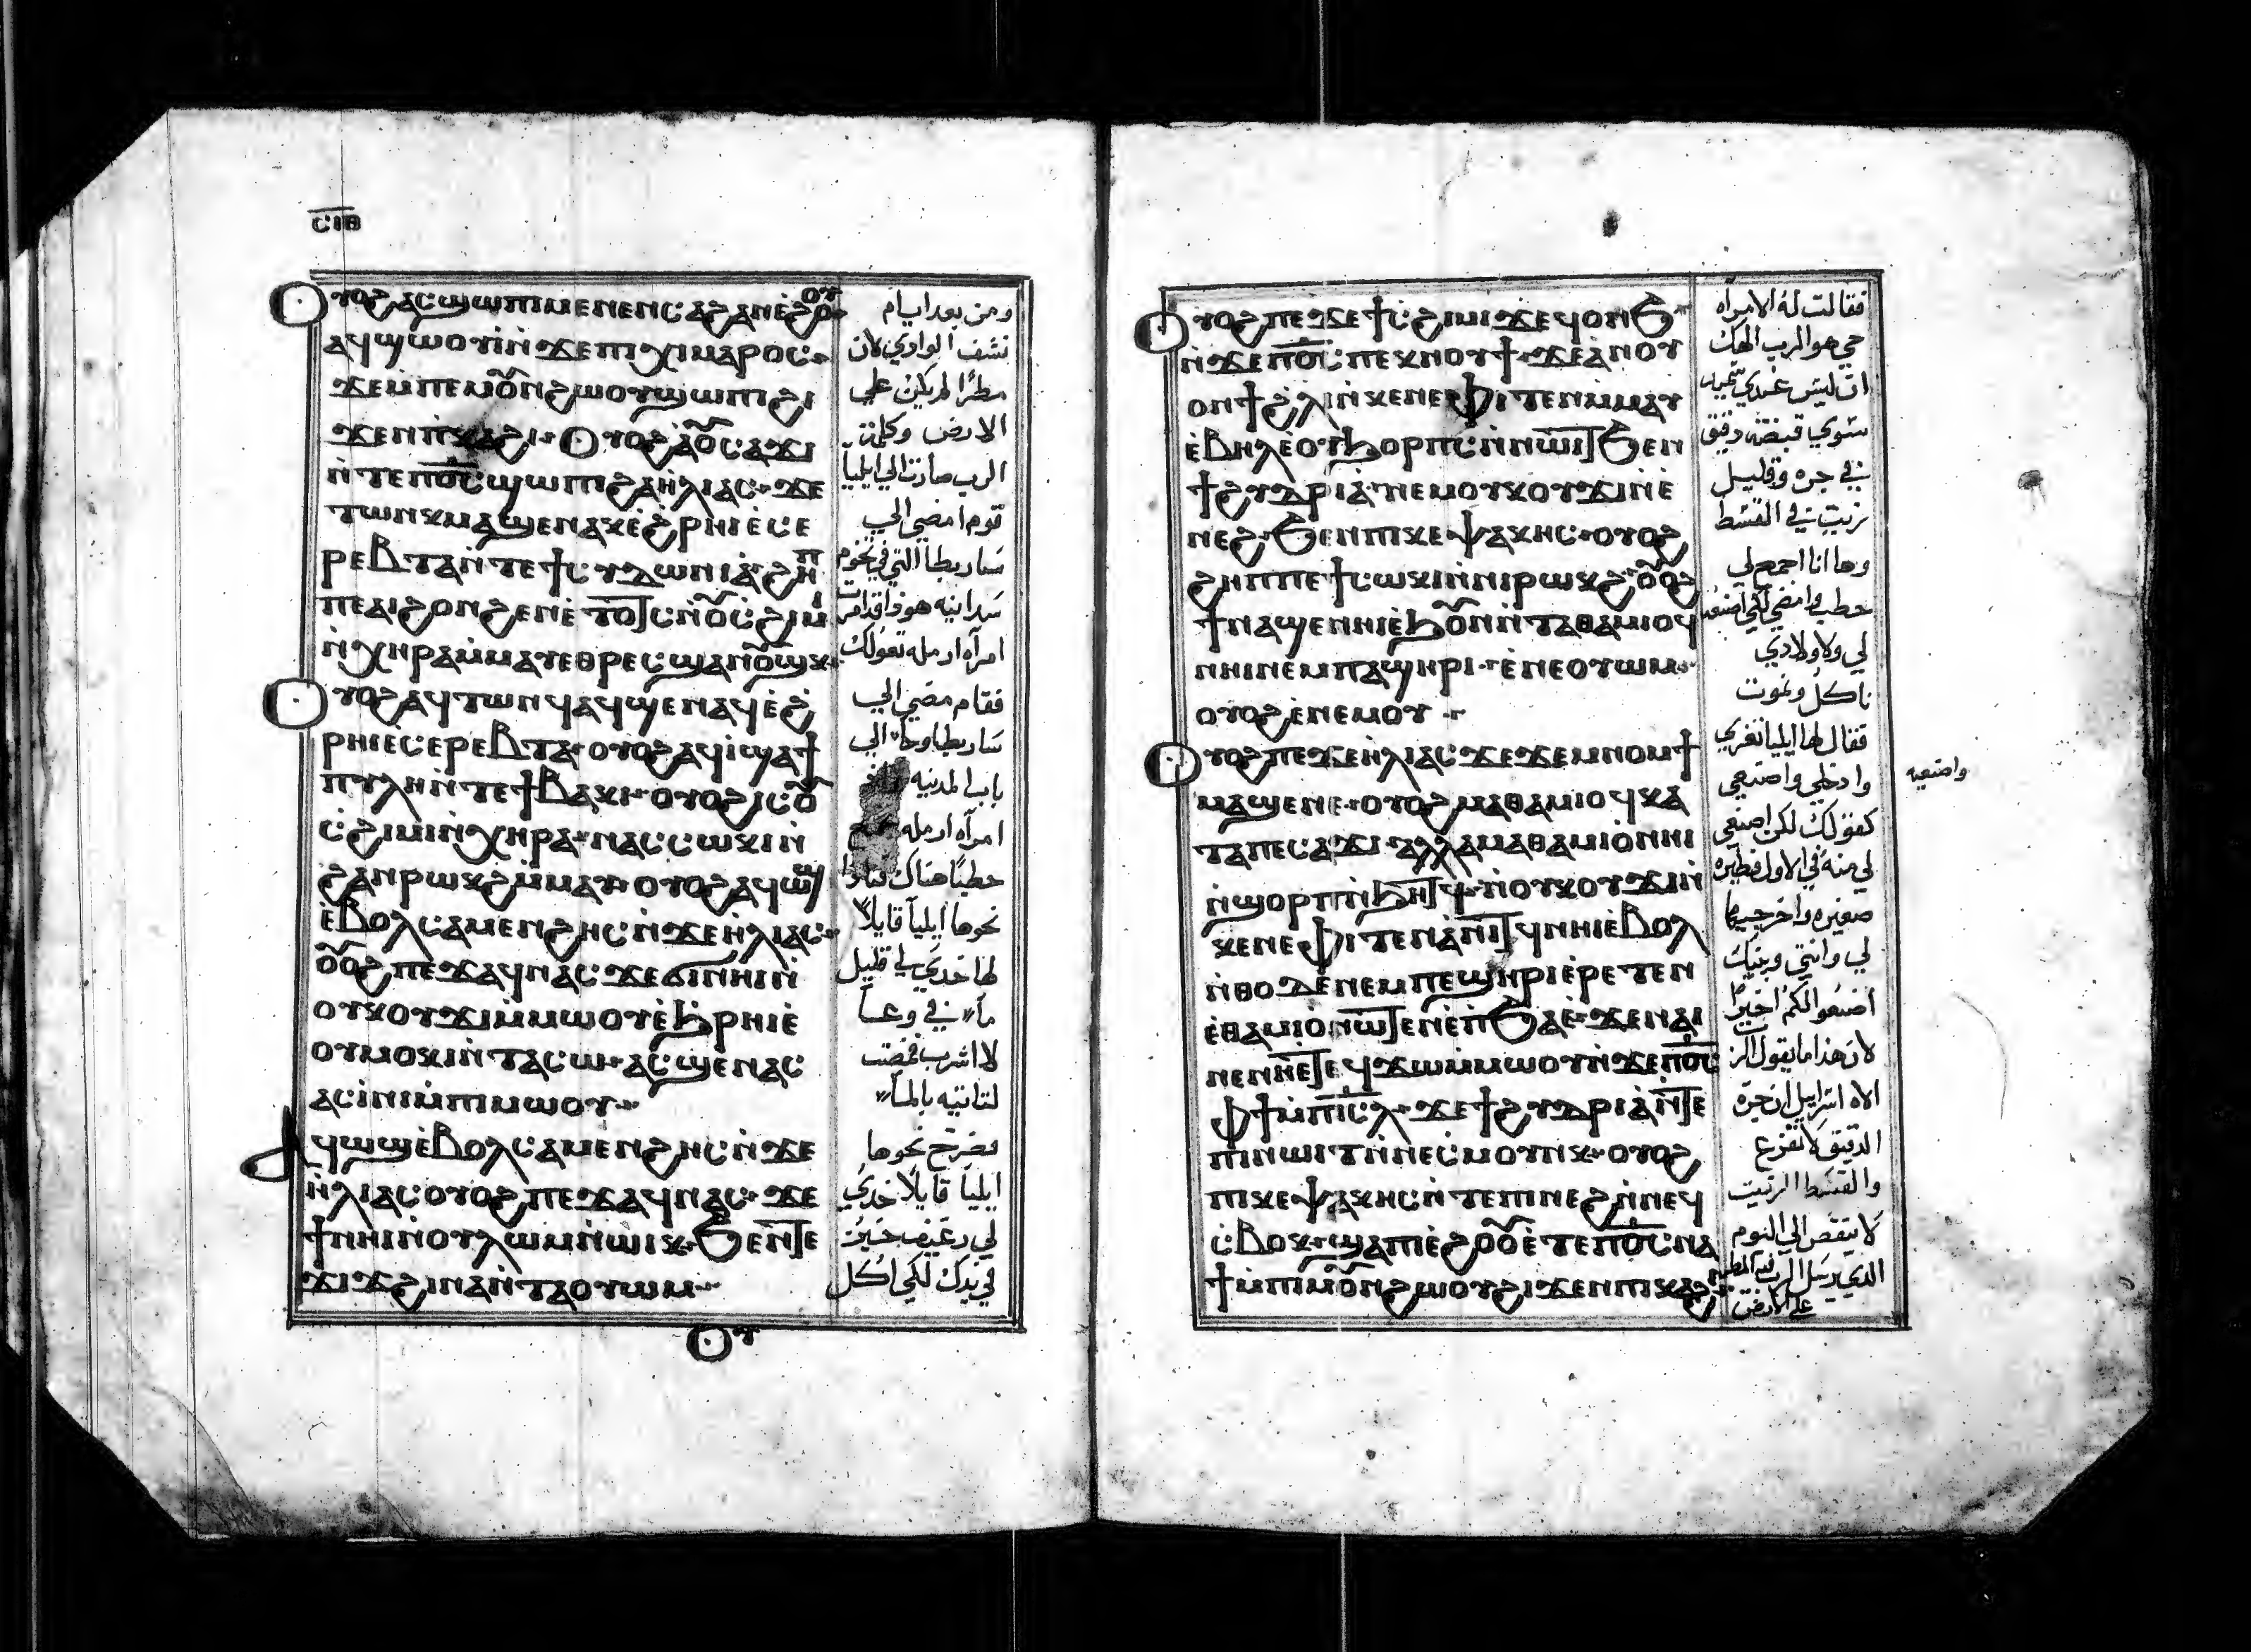 ⲤⲒⲂ
Ⲟⲩⲟϩ ⲁⲥϣⲱⲡⲓ ⲙⲉⲛⲉⲛⲥⲁ ϩⲁⲛⲉϩⲟⲟⲩ
ⲁϥϣⲱⲟⲩⲓ̀ ⲛ̀ϫⲉ ⲡⲓⲭⲓⲙⲁⲣⲟⲥ
ϫⲉ ⲙ̀ⲡⲉ ⲙⲟⲩⲛϩⲱⲟⲩ ϣⲱⲡⲓ ϩⲓ
ϫⲉⲛ ⲡⲕⲁϩⲓ Ⲟⲩⲟϩ ⲁ̀ⲟⲩⲥⲁϫⲓ
ⲛ̀ⲧⲉ ⲡⲟ̅ⲥ̅ ϣⲱⲡⲓ ϩⲁ ⲏ̀ⲗⲓⲁⲥ ϫⲉ
ⲧⲱⲛⲕ ⲙⲁϣⲉⲛⲁⲕ ⲉ̀ϩ̀ⲣⲏⲓ ⲉ̀ⲥⲉ
ⲣⲉⲃⲧⲁ ⲛ̀ⲧⲉ ϯⲥⲩⲇⲱⲛⲓⲁ̀ ϩⲏⲡ
ⲡⲉ ⲁⲓϩⲟⲛϩⲉⲛ ⲉ̀ⲧⲟⲧⲥ ⲛ̀ⲟⲩⲥϩⲓⲙⲓ
ⲛ̀ⲭⲏⲣⲁ ⲙ̀ⲙⲁⲩ ⲉⲑⲣⲉⲥϣⲁⲛⲟⲩϣⲕ
Ⲟⲩⲟϩ ⲁϥⲧⲱⲛϥ ⲁϥϣⲉⲛⲁϥ ⲉ̀ϩ̀
ⲣⲏⲓ ⲉ̀ⲥⲉⲣⲉⲃⲧⲁ ⲟⲩⲟϩ ⲁϥⲓ̀ ϣⲁ ϯ
ⲡⲩⲗⲏ ⲛ̀ⲧⲉ ϯⲃⲁⲕⲓ ⲟⲩⲟϩ ⲓⲥ ⲟⲩ
ⲥ̀ϩⲓⲙⲓ ⲛ̀ⲭⲏⲣⲁ ⲛⲁⲥⲥⲱⲕⲓ ⲛ̀
ϩⲁⲛⲣⲱⲕϩ ⲙ̀ⲙⲁⲩ ⲟⲩⲟϩ ⲁϥⲱϣ
ⲉ̀ⲃⲟⲗ ⲥⲁⲙⲉⲛϩⲏⲥ ⲛ̀ϫⲉ ⲏ̀ⲗⲓⲁⲥ
ⲟⲩⲟϩ ⲡⲉϫⲁϥ ⲛⲁⲥ ϫⲉ ϭⲓ ⲛⲏⲓ ⲛ̀
ⲟⲩⲕⲟⲩϫⲓ ⲙ̀ⲙⲱⲟⲩ ⲉ̀ϧⲣⲏⲓ ⲉ̀
ⲟⲩⲙⲟⲕⲓ ⲛ̀ⲧⲁⲥⲱ ⲁⲥϣⲉⲛⲁⲥ
ⲁⲥⲓ̀ⲛⲓ ⲙ̀ⲡⲓⲙⲱⲟⲩ
Ⲁϥⲱϣ ⲉ̀ⲃⲟⲗ ⲥⲁⲙⲉⲛϩⲏⲥ ⲛ̀ϫⲉ
ⲏ̀ⲗⲓⲁⲥ ⲟⲩⲟϩ ⲡⲉϫⲁϥ ⲛⲁⲥ ϫⲉ
ϯ ⲛⲏⲓ ⲛ̀ⲟⲩⲗⲱⲙ ⲛ̀ⲱⲓⲕ ϧⲉⲛ ⲧⲉ
ϫⲓϫ ϩⲓⲛⲁ ⲛ̀ⲧⲁⲟⲩⲱⲙ
Ⲟⲩ
ومن بعد ايام
نشف الوادي لان
مطرًا لم يكن علي
الارض وكلمة
الرب صارت الي ايليا
قوم امضي الي
ساربطا التي في تخوم
سدانيه هوذا قد امرت
امرآه ارمله تعولك
فقام مضي الي
ساربطا وجا الي
باب المدينه
امرآه ارمله
حطبًا هناك
نحوها ايليا قايلًا
لها خدي لي قليل
مآ في وعآ
لاشرب فمضت
لتاتيه بالمآ
فصرخ نحوها
ايليا قايلًا خدي
لي رغيف خبز
في يدك لكي اكل
Ⲟⲩⲟϩ ⲡⲉϫⲉ ϯⲥϩⲓⲙⲓ ϫⲉ ϥⲟⲛϧ
ⲛ̀ϫⲉ ⲡⲟ̅ⲥ̅ ⲡⲉⲕⲛⲟⲩϯ ϫⲉ ⲁ̀ⲛⲟⲩ
ⲟⲛϯ ϩ̀ⲗⲓ ⲛ̀ⲕⲉⲛⲉⲫⲓⲧⲉⲛ ⲙ̀ⲙⲁⲩ
ⲉ̀ⲃⲏⲗ ⲉ̀ⲟⲩϧⲟⲣⲡⲥ ⲛ̀ⲛⲱⲓⲧ ϧⲉⲛ
ϯϩⲩⲇⲣⲓⲁ̀ ⲛⲉⲙ ⲟⲩⲕⲟⲩϫⲓ ⲛ̀ⲉ
ⲛⲉϩ ϧⲉⲛ ⲡⲓⲕⲉⲯⲁⲕⲏⲥ ⲟⲩⲟϩ
ϩⲏⲡⲡⲉ ϯⲥⲱⲕⲓ ⲛ̀ⲛⲓⲣⲱⲕϩ ⲟⲩⲟϩ
ϯⲛⲁϣⲉⲛⲏⲓ ⲉ̀ϧⲟⲩⲛ ⲛ̀ⲧⲁⲑⲁⲙⲓⲟϥ
ⲛⲏⲓ ⲛⲉⲙ ⲡⲁϣⲏⲣⲓ ⲉ̀ⲛⲉⲟⲩⲱⲙ
ⲟⲩⲟϩ ⲉ̀ⲛⲉⲙⲟⲩ
Ⲟⲩⲟϩ ⲡⲉϫⲉ ⲏ̀ⲗⲓⲁⲥ ϫⲉ ϫⲉⲙⲛⲟⲙϯ
ⲙⲁϣⲉⲛⲉ ⲟⲩⲟϩ ⲙⲁⲑⲁⲙⲓⲟϥ ⲕⲁ
ⲧⲁ ⲡⲉⲥⲁϫⲓ ⲁⲗⲗⲁ ⲙⲁⲑⲁⲙⲓⲟ̀ ⲛⲏⲓ
ⲛ̀ϣⲟⲣⲡ ⲛ̀ϧⲏⲧϥ ⲛ̀ⲟⲩⲕⲟⲩϫⲓ ⲛ̀
ⲕⲉⲛⲉⲫⲓⲧⲉⲛ ⲁ̀ⲛⲓⲧϥ ⲛⲏⲓ ⲉ̀ⲃⲟⲗ
ⲛ̀ⲑⲟ ⲇⲉ ⲛⲉⲙ ⲡⲉϣⲏⲣⲓ ⲉ̀ⲣⲉⲧⲉⲛ
ⲉ̀ⲑⲁⲙⲓⲟ̀ ⲛⲱⲧⲉⲛ ⲉ̀ⲡϧⲁⲉ̀ ϫⲉ ⲛⲁⲓ
ⲛⲉ ⲛⲏⲉ̀ⲧⲉϥϫⲱ ⲙ̀ⲙⲱⲟⲩ ⲛ̀ϫⲉ ⲡⲟ̅ⲥ̅
ⲫϯ ⲙ̀ⲡⲓ̅ⲥ̅ⲗ̅ ϫⲉ ϯϩⲩⲇⲣⲓⲁ̀ ⲛ̀ⲧⲉ
ⲡⲓⲛⲱⲓⲧ ⲛ̀ⲛⲉⲥⲙⲟⲩⲛⲕ ⲟⲩⲟϩ
ⲡⲓⲕⲉⲯⲁⲕⲏⲥ ⲛ̀ⲧⲉ ⲡⲓⲛⲉϩ ⲛ̀ⲛⲉϥ
ⲥ̀ⲃⲟⲕ ϣⲁ ⲡⲓⲉ̀ϩⲟⲟⲩ ⲉ̀ⲧⲉ ⲡⲟ̅ⲥ̅ ⲛⲁ
ϯ ⲙ̀ⲡⲓⲙⲟⲩⲛϩⲱⲟⲩ ϩⲓϫⲉⲛ ⲡⲓⲕⲁϩⲓ
فقالت له الامراه
حي هو الرب الهك
ان ليس عندي
سوي قبضة دقيق
في جره وقليل
زيت في القسط
وها انا اجمع لي
حطب وامضي لكي اصنعه
لي ولاولادي
ناكل ونموت
فقال لها ايليا تعزي
وادخلي واصنعي
كقولك لكن اصنعي
لي منه في الاول فطيره
صغيره واخرجيها
لي وانتي وبنيك
اصنعوا لكم اخيرًا
لان هذا ما يقول الرب
الاه اسراييل ان جرة
الدقيق لا تفرغ
والقسط الزيت
لا ينقص الي اليوم
الدي يرسل الرب فيه المطر
علي الارض
واصنعيه